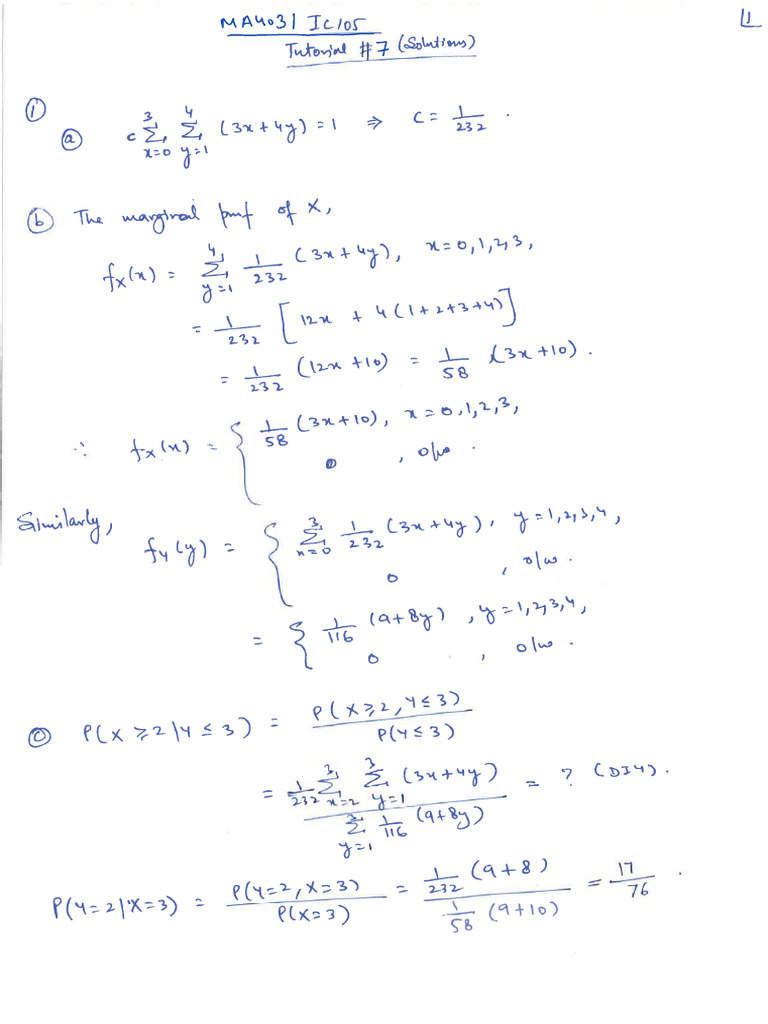 MA4031 IC105
1
Tutorial #7 (Solutions)
①
ⓐ c ∑_{x=0}^{3} ∑_{y=1}^{4} (3x+4y) = 1 ⇒ C = 1/232 .
ⓑ The marginal pmf of X,
f_X(x) = ∑_{y=1}^{4} 1/232 (3x+4y), x=0,1,2,3,
= 1/232 [12x + 4(1+2+3+4)]
= 1/232 (12x+10) = 1/58 (3x+10) .
∴ f_X(x) = { 1/58 (3x+10), x=0,1,2,3,
0 , o/w .
Similarly,
f_Y(y) = { ∑_{x=0}^{3} 1/232 (3x+4y), y=1,2,3,4,
0 , o/w .
= { 1/116 (9+8y) , y=1,2,3,4,
0 , o/w .
ⓒ P(X ≥ 2 | Y ≤ 3) = P(X≥2, Y≤3) / P(Y≤3)
= 1/232 ∑_{x=2}^{3} ∑_{y=1}^{3} (3x+4y) / ∑_{y=1}^{3} 1/116 (9+8y) = ? (DIY).
P(Y=2|X=3) = P(Y=2, X=3) / P(X=3) = 1/232 (9+8) / 1/58 (9+10) = 17/76 .